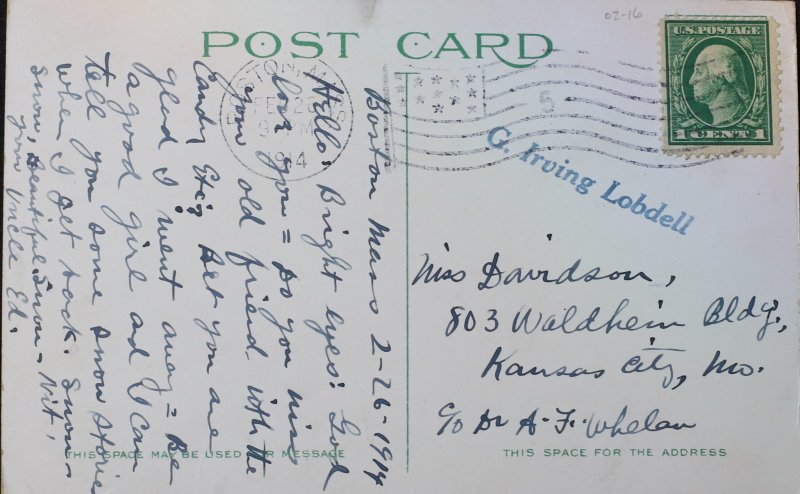 02-16
POST CARD
U.S. POSTAGE
1 CENT 1
BOSTON, MASS
FEB 26
9 M
1914
5
G. Irving Lobdell
Boston Mass 2-26-1914
Hello: Bright eyes: God
love you = Do you miss
your old friend with the
Candy Etc; Bet you are
glad I went away = Be
a good girl ad I can
tell you some snow stories
when I get back. Snow -
Snow, Beautiful Snow - Nit,
your Uncle Ed.
THIS SPACE MAY BE USED FOR MESSAGE
Miss Davidson,
803 Waldheim Bldg.,
Kansas City, Mo.
c/o Dr A. F. Whelan
THIS SPACE FOR THE ADDRESS